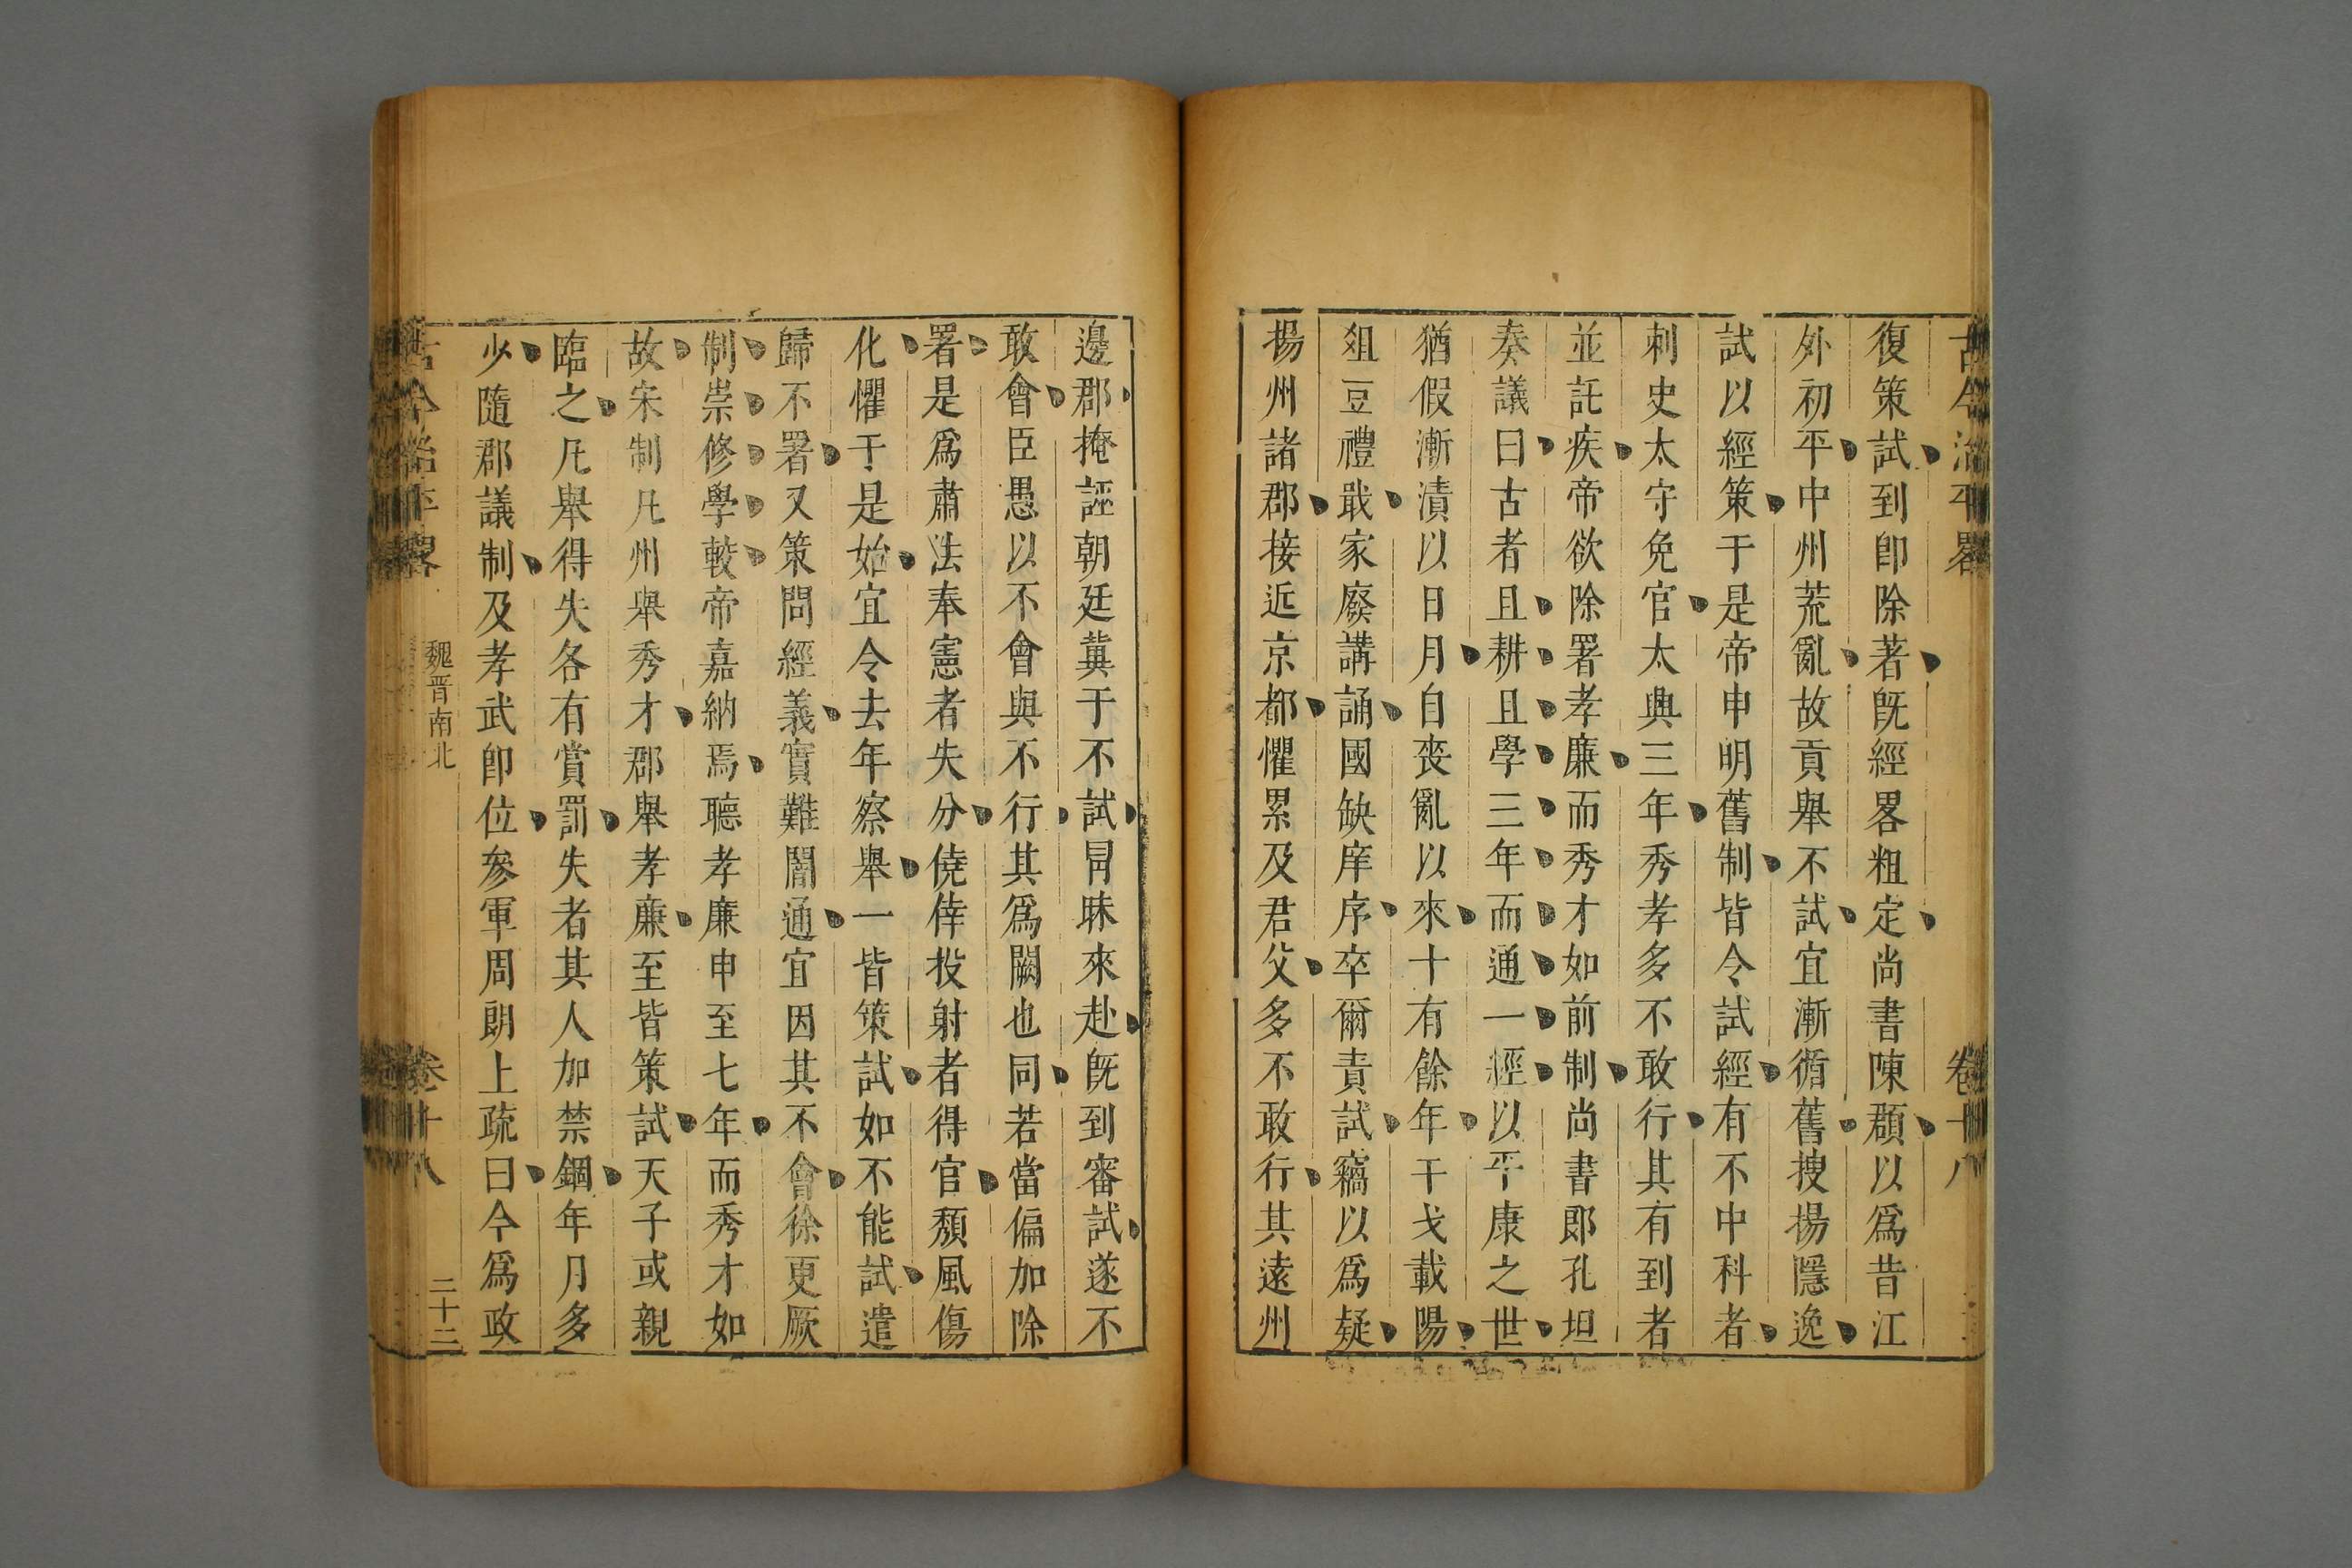 古今治平畧
卷十八
復策試到卽除著旣經畧粗定尚書陳頵以爲昔江
外初平中州荒亂故貢舉不試宜漸循舊搜揚隱逸
試以經策于是帝申明舊制皆令試經有不中科者
刺史太守免官太興三年秀孝多不敢行其有到者
並託疾帝欲除署孝廉而秀才如前制尚書郎孔坦
奏議曰古者且耕且學三年而通一經以平康之世
猶假漸漬以日月自喪亂以來十有餘年干戈載陽
俎豆禮戢家廢講誦國缺庠序卒爾責試竊以爲疑
揚州諸郡接近京都懼累及君父多不敢行其遠州
邊郡掩誣朝廷冀于不試冐昧來赴旣到審試遂不
敢會臣愚以不會與不行其爲闕也同若當偏加除
署是爲肅法奉憲者失分僥倖投射者得官頹風傷
化懼于是始宜令去年察舉一皆策試如不能試遣
歸不署又策問經義實難闇通宜因其不會徐更厥
制崇修學較帝嘉納焉聽孝廉申至七年而秀才如
故宋制凡州舉秀才郡舉孝廉至皆策試天子或親
臨之凡舉得失各有賞罰失者其人加禁錮年月多
少隨郡議制及孝武卽位參軍周朗上疏曰今爲政
古今治平畧
魏晋南北
卷十八
二十二